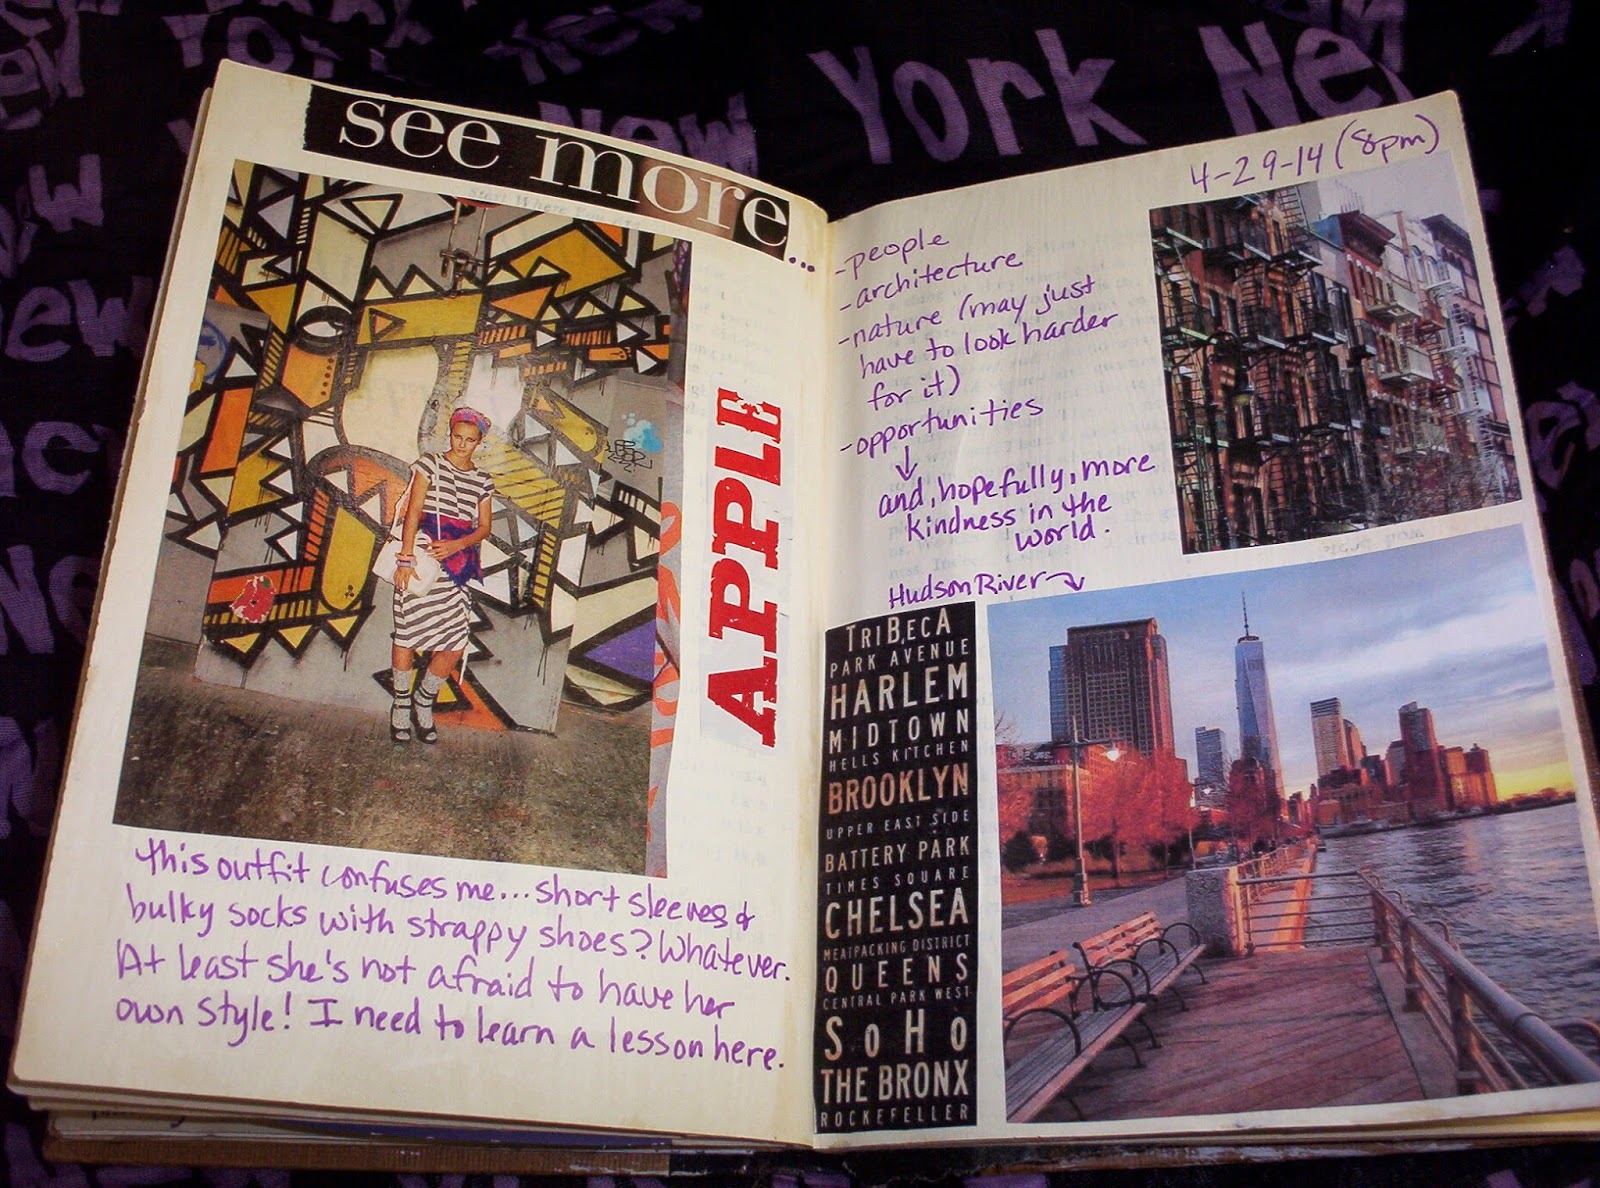 New York New
see more
...
APPLE
this outfit confuses me... short sleeves &
bulky socks with strappy shoes? Whatever.
At least she's not afraid to have her
own style! I need to learn a lesson here.
4-29-14 (8pm)
-people
-architecture
-nature (may just
have to look harder
for it)
-opportunities
and, hopefully, more
kindness in the
world.
Hudson River
TRIBECA
PARK AVENUE
HARLEM
MIDTOWN
HELLS KITCHEN
BROOKLYN
UPPER EAST SIDE
BATTERY PARK
TIMES SQUARE
CHELSEA
MEATPACKING DISTRICT
QUEENS
CENTRAL PARK WEST
SoHo
THE BRONX
ROCKEFELLER